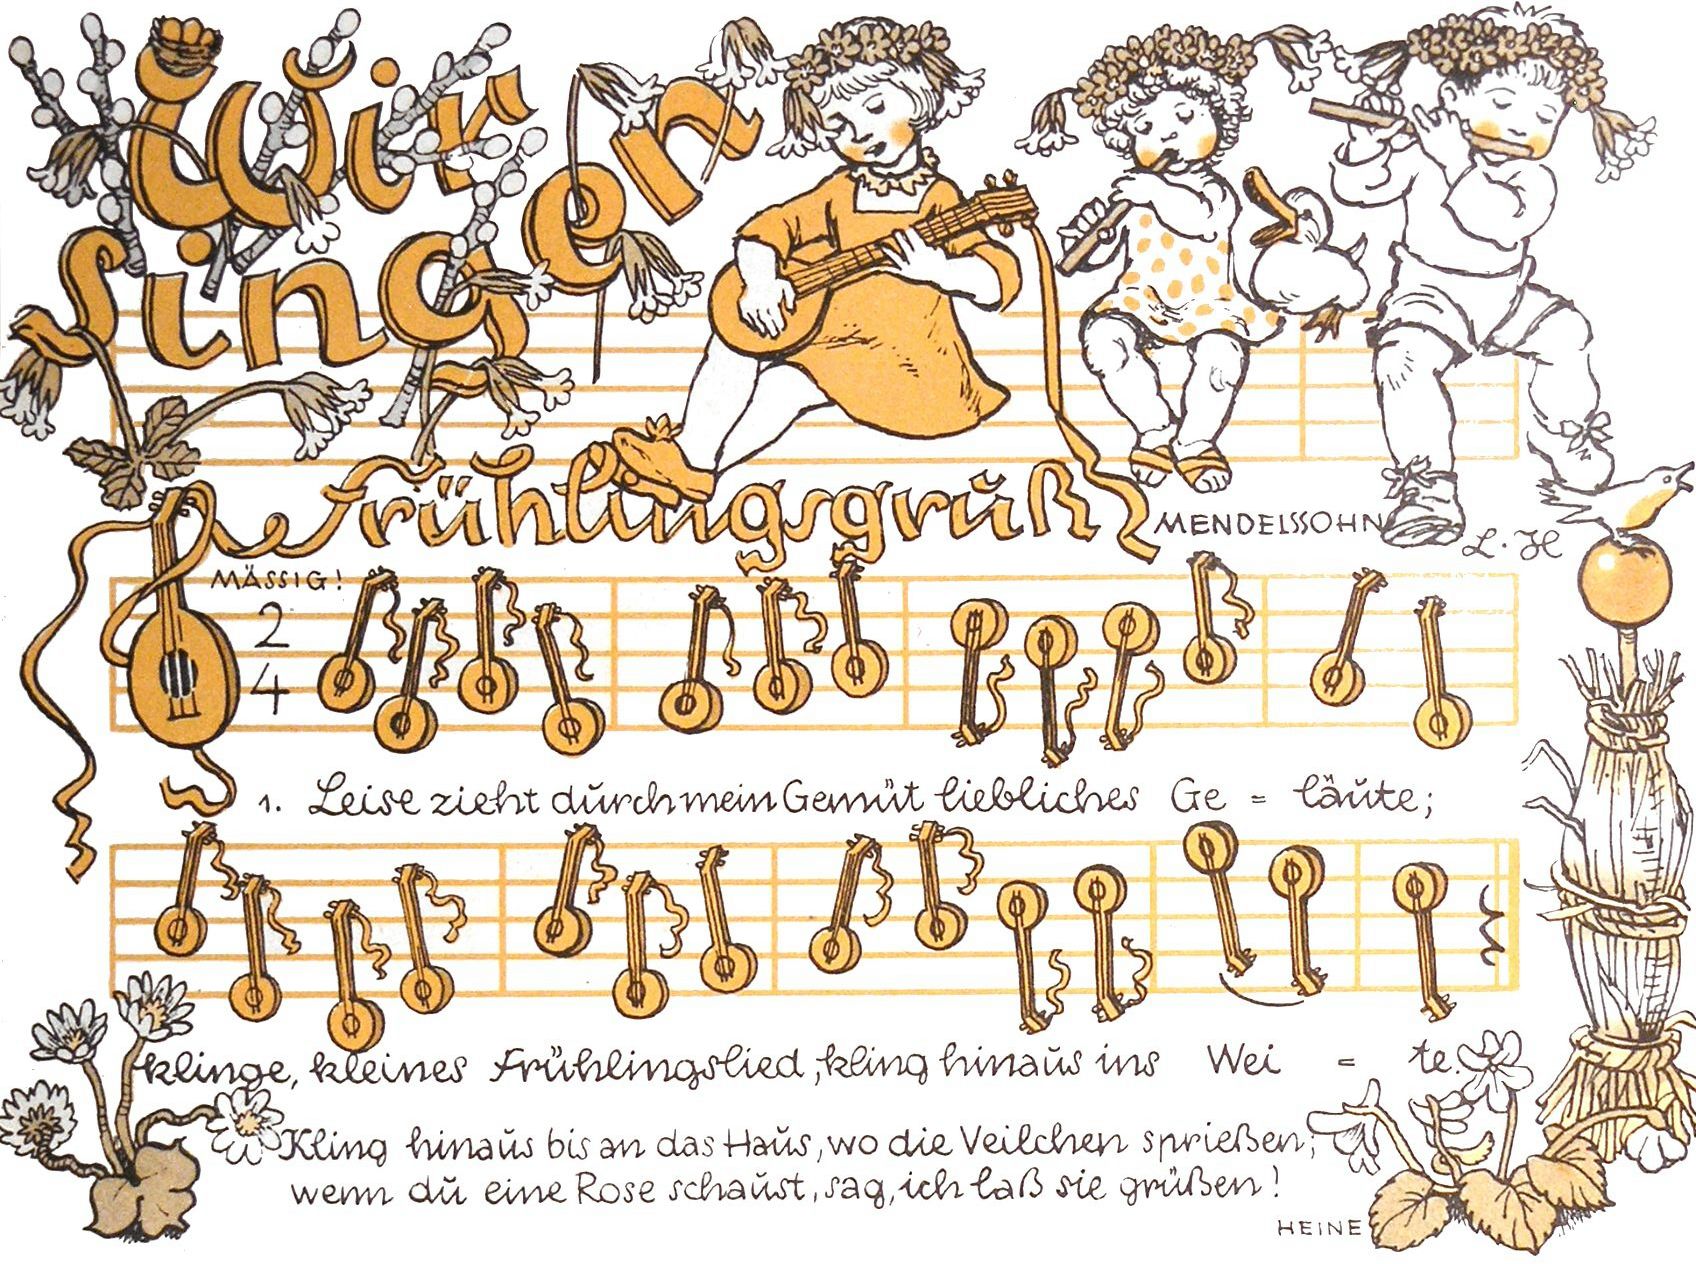 Wir
singen
Frühlingsgruß
MENDELSSOHN
L. H
MÄSSIG!
2
4
1. Leise zieht durch mein Gemüt liebliches Ge = läute;
klinge, kleines Frühlingslied, kling hinaus ins Wei = te.
Kling hinaus bis an das Haus, wo die Veilchen sprießen;
wenn du eine Rose schaust, sag, ich laß sie grüßen!
HEINE